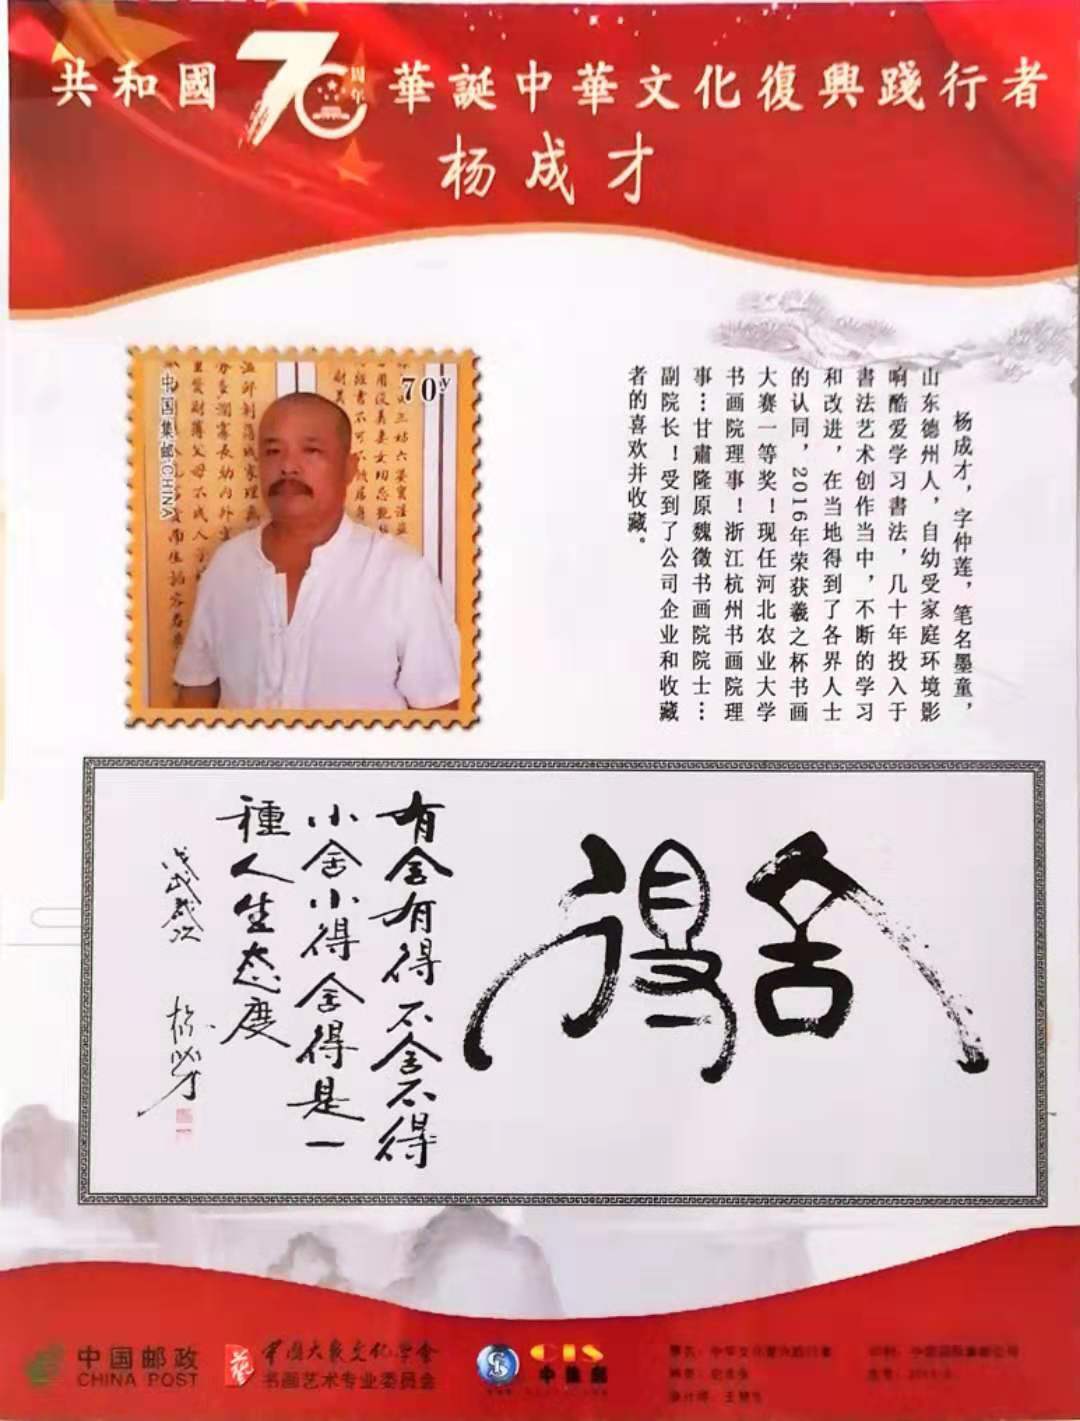 共和國70周年華誕中華文化復興踐行者
杨成才
中国集邮·CHINA
70y
杨成才，字仲莲，笔名墨童，
山东德州人，自幼受家庭环境影
响酷爱学习書法，几十年投入于
書法艺术创作当中，不断的学习
和改进，在当地得到了各界人士
的认同，2016年荣获羲之杯书画
大赛一等奖！现任河北农业大学
书画院理事！浙江杭州书画院理
事…甘肃隆原魏微书画院院士…
副院长！受到了公司企业和收藏
者的喜欢并收藏。
舍得
有舍有得不舍不得
小舍小得舍得是一
種人生态度
中国邮政
CHINA POST
中国大众文化学会
书画艺术专业委员会
CIS